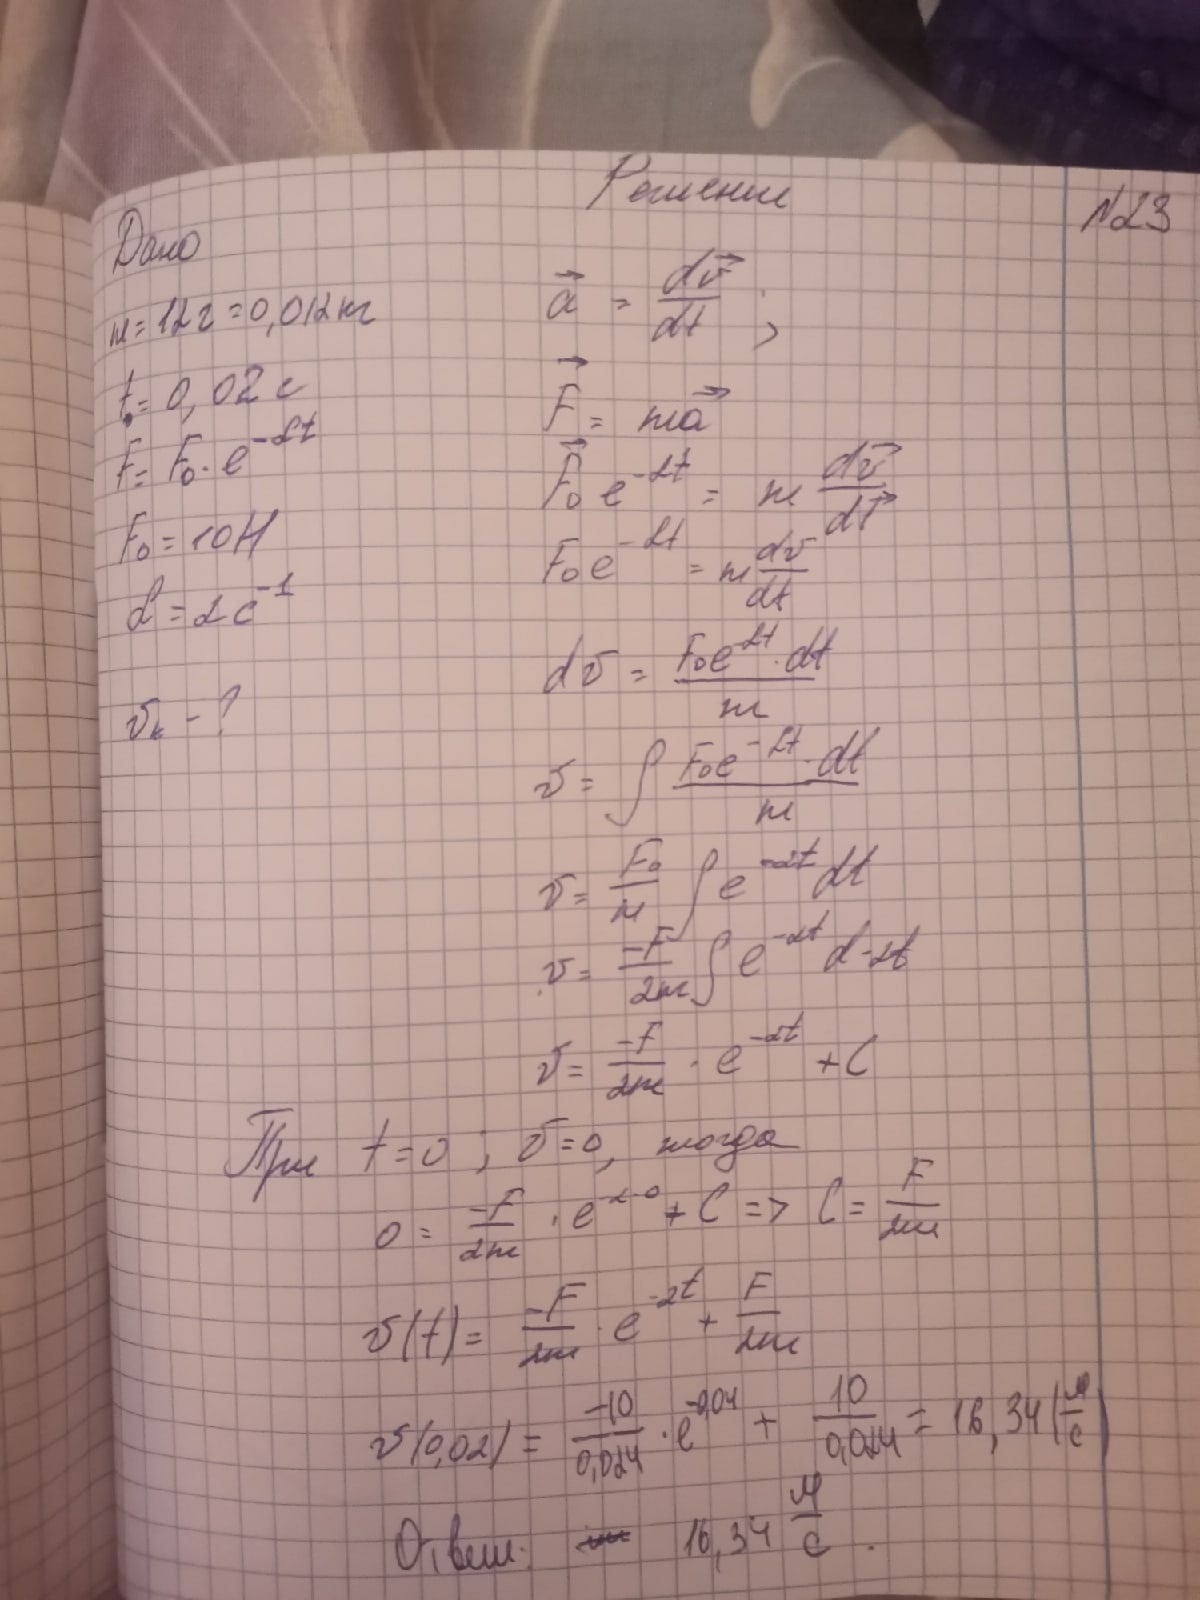 Решение
№23
Дано
m = 12г = 0,012кг
t = 0,02 с
F = F₀ · e^-αt
F₀ = 10Н
α = 2 с^-1
vк - ?
a⃗ = dv⃗/dt ;
F⃗ = ma⃗
F⃗₀ e^-αt = m dv⃗/dt⃗
F₀e^-αt = m dv/dt
dv = F₀e^-αt · dt / m
v = ∫ F₀e^-αt · dt / m
v = F₀/m ∫ e^-2t dt
v = -F/2m ∫ e^-2t d-2t
v = -F/2m · e^-2t + C
При t = 0 ; v = 0, тогда
0 = -F/2m · e^-2·0 + C => C = F/2m
v(t) = -F/2m · e^-2t + F/2m
v(0,02) = -10/0,024 · e^-0,04 + 10/0,024 = 16,34 (м/с)
Ответ: 16,34 м/с .